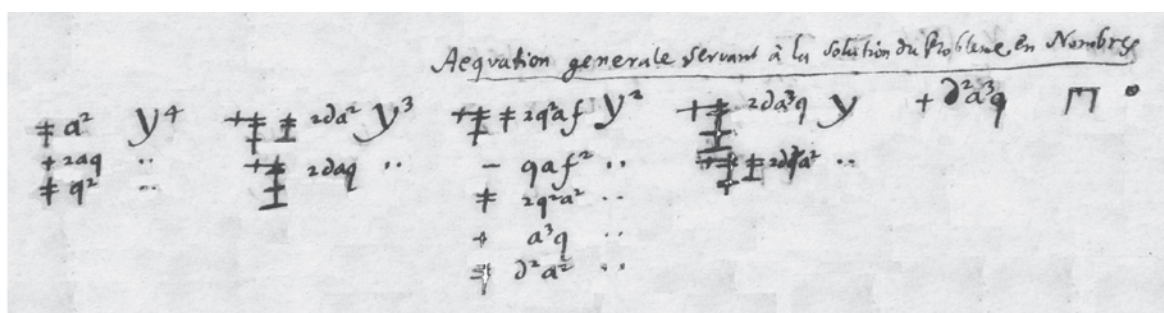 Aeqvation generale servant à la solution du Probleme en Nombres
⧧ a² y⁴ +⧧ ⧧ 2∂a² y³ +⧧ ⧧ 2q²af y² +⧧ 2∂a³q y + ∂²a³q ⊓ 0
+ 2aq .. +⧧ 2∂aq .. − qaf² ..
⧧ q² .. ⧧ 2q²a² ..
+ a³q ..
∂²a² ..